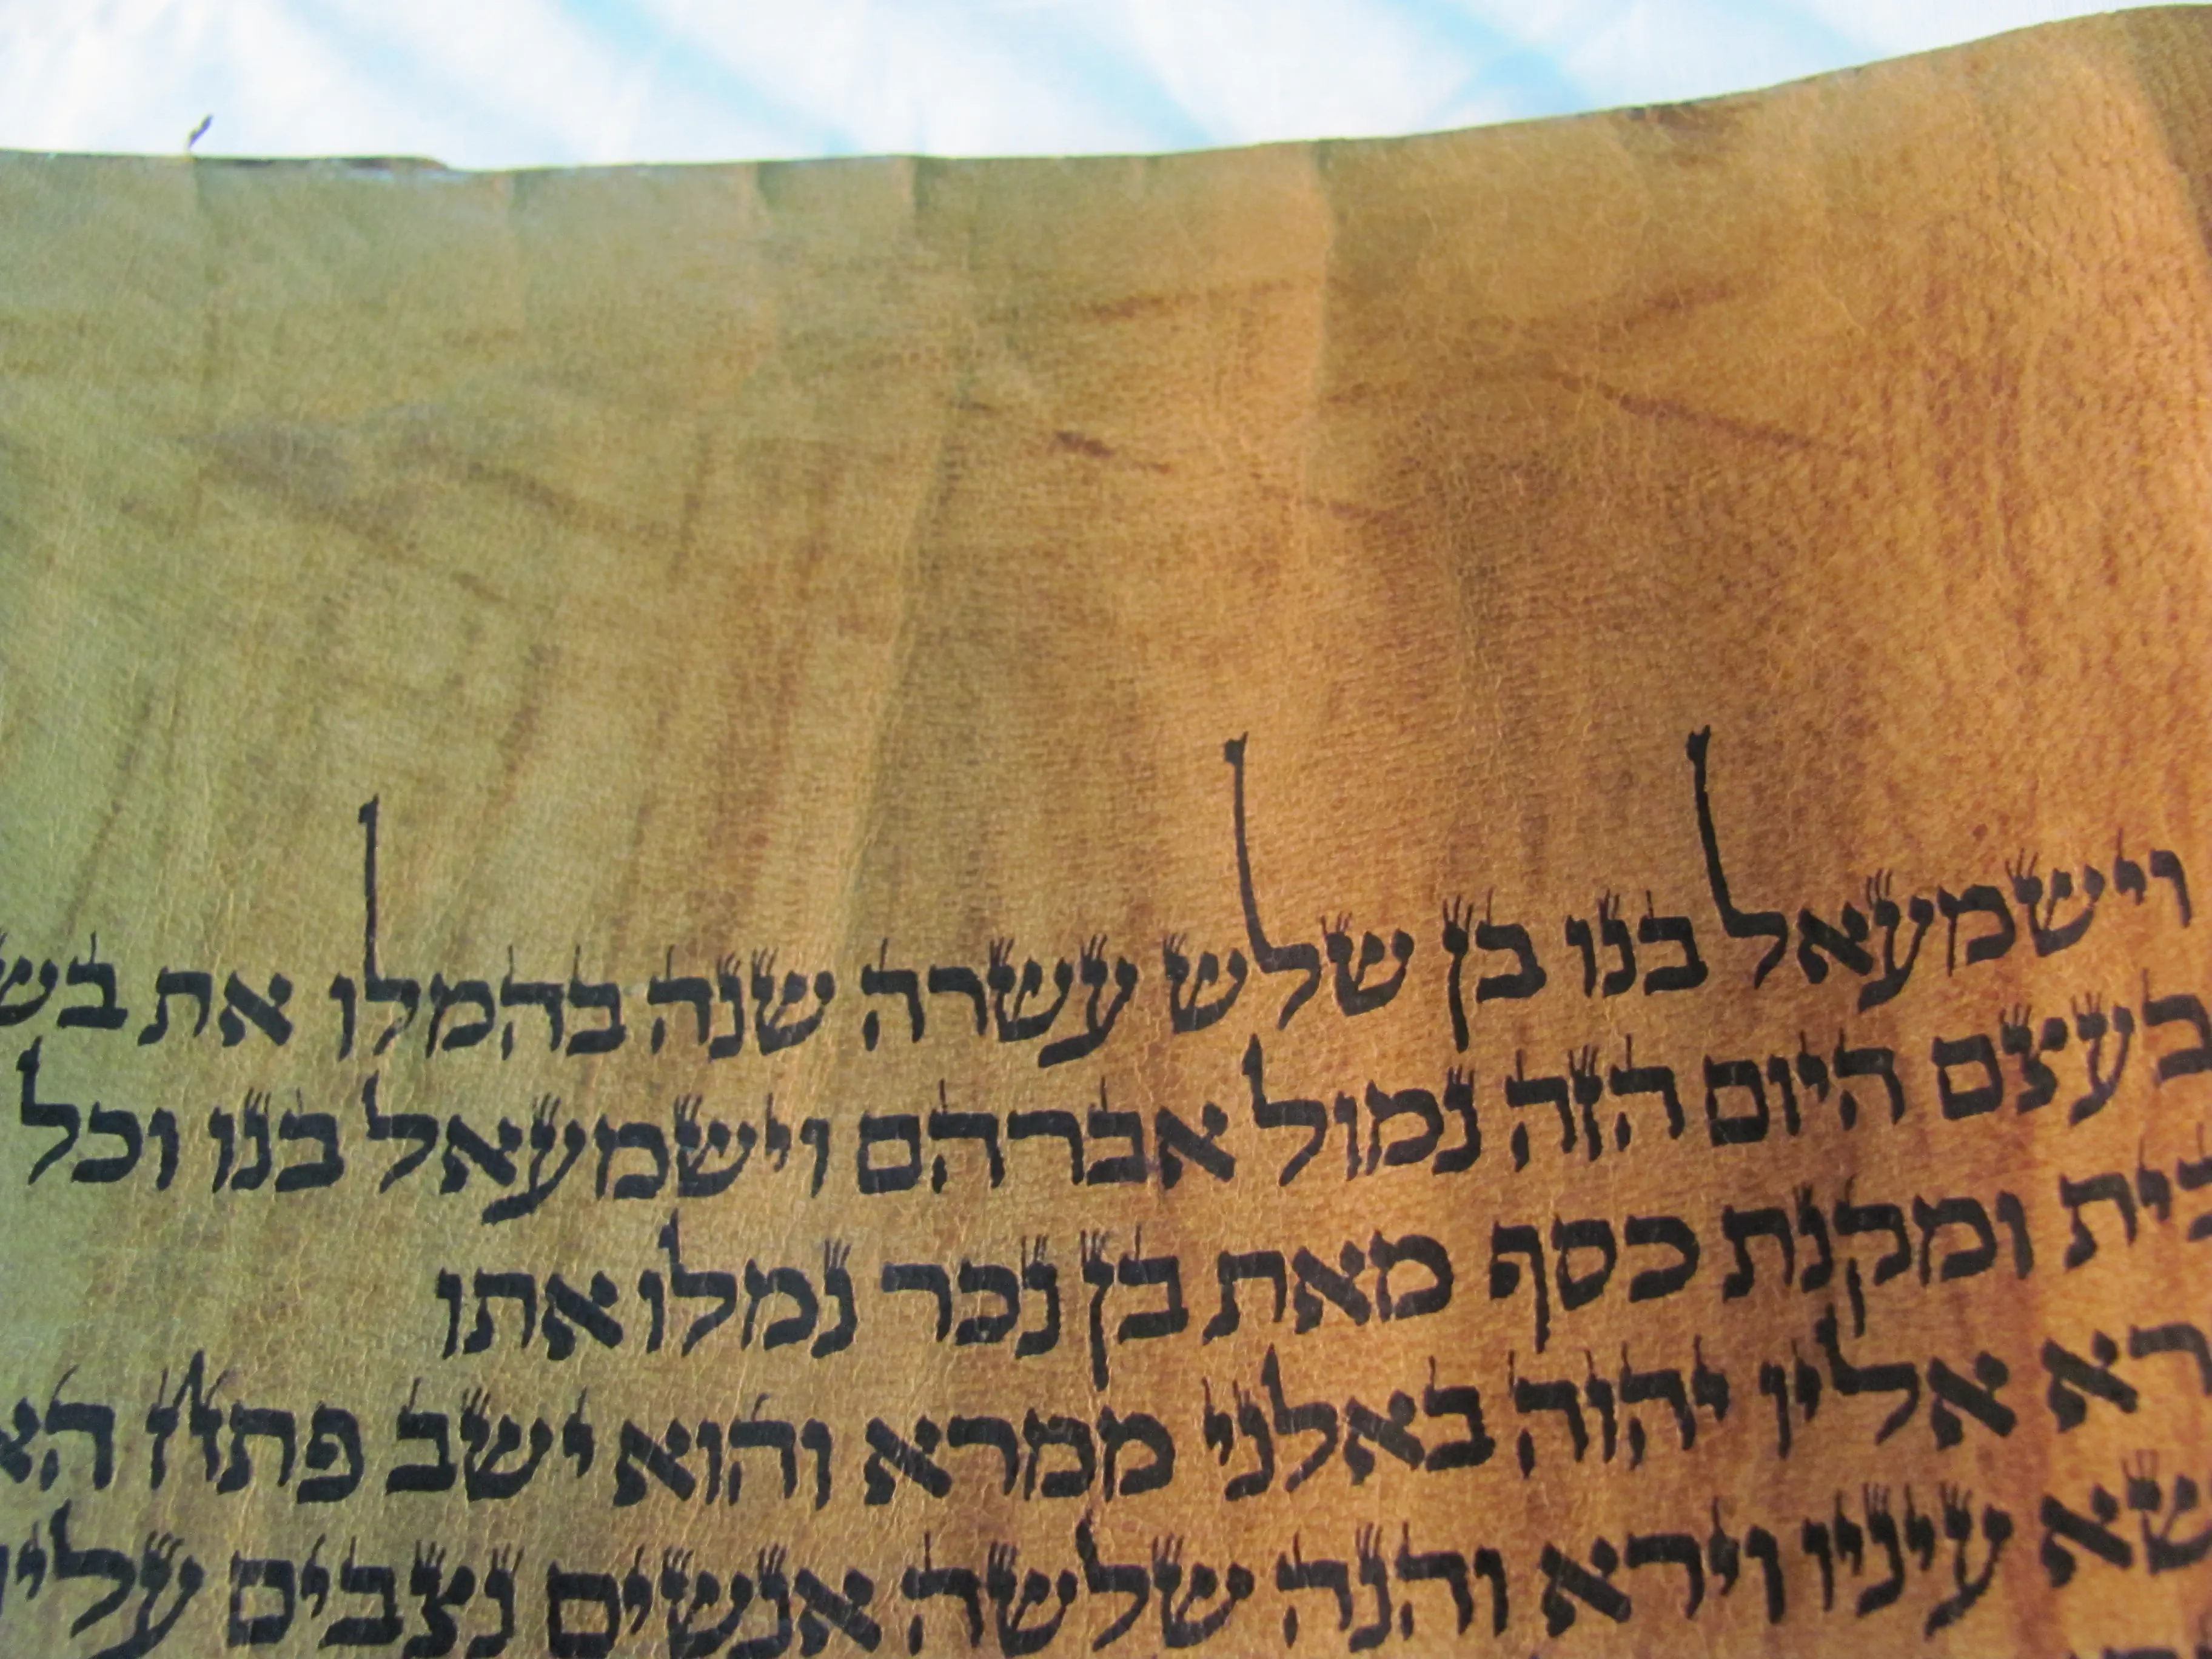 וישמעאל בנו בן שלש עשרה שנה בהמלו את בש
בעצם היום הזה נמול אברהם וישמעאל בנו וכל
בית ומקנת כסף מאת בן נכר נמלו אתו
רא אליו יהוה באלני ממרא והוא ישב פתח הא
שא עיניו וירא והנה שלשה אנשים נצבים עליו